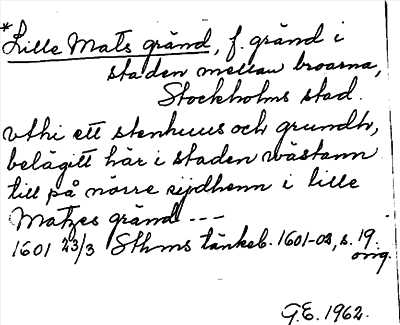 *Lille Mats gränd, f. gränd i
staden mellan broarna,
Stockholms stad.
vthi ett stenhuus och grundh,
belägitt här i staden wästann
till på nörre sijdhenn i lille
Matzes gränd ---
1601 23/3 Sthms tänkeb. 1601-02, s. 19.
orig.
G.E. 1962.